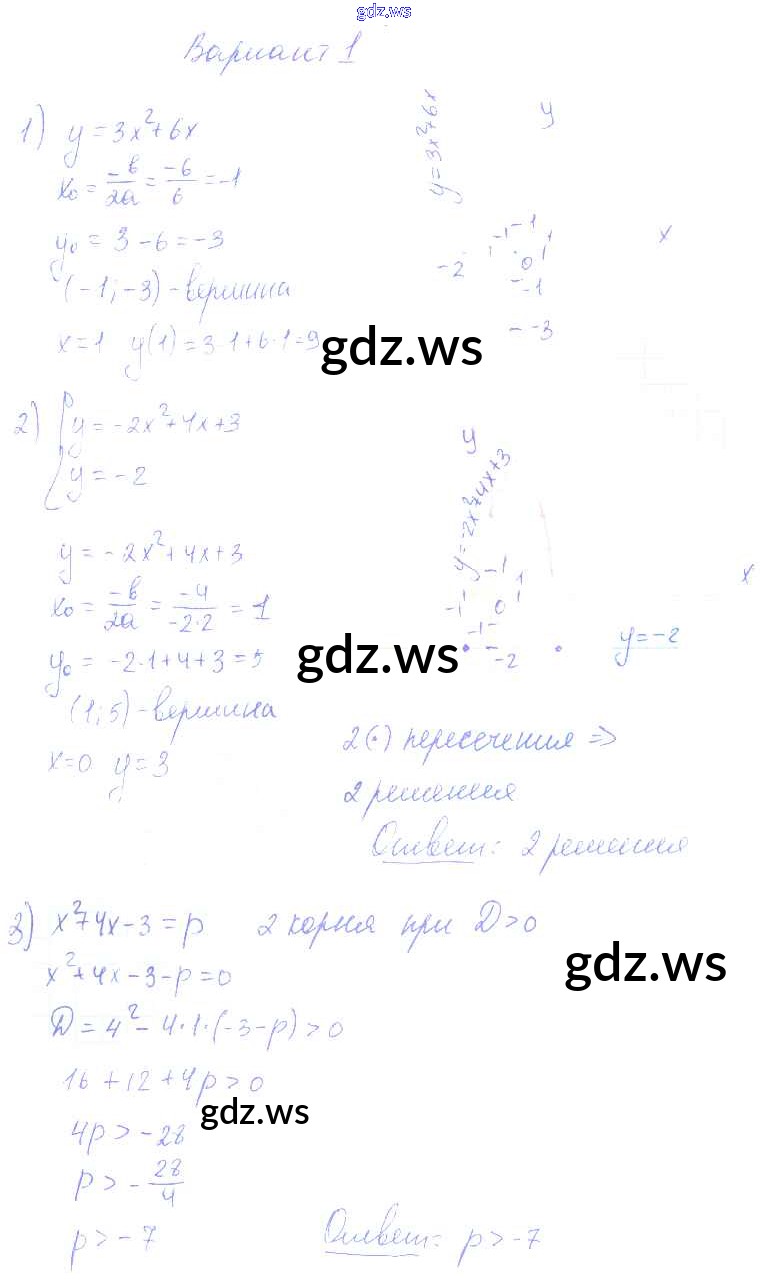 gdz.ws
Вариант 1
1) y = 3x²+6x
x₀ = -b/2a = -6/6 = -1
y₀ = 3 - 6 = -3
(-1; -3) - вершина
x = 1 y(1) = 3·1+6·1=9
y = 3x²+6x
y
x
-1
1
-1
1
-2
0
-1
-3
gdz.ws
2) { y = -2x²+4x+3
y = -2
y = -2x²+4x+3
x₀ = -b/2a = -4/-2·2 = 1
y₀ = -2·1+4+3 = 5
(1; 5) - вершина
x=0 y = 3
y
y = -2x²+4x+3
x
-1
1
-1
0
-1
-2
y = -2
gdz.ws
2(·) пересечения =>
2 решения
Ответ: 2 решения
3) x²+4x-3 = p 2 корня при D>0
x²+4x-3-p=0
gdz.ws
D = 4² - 4·1·(-3-p) > 0
16+12+4p>0
gdz.ws
4p > -28
p > -28/4
p > -7
Ответ: p > -7